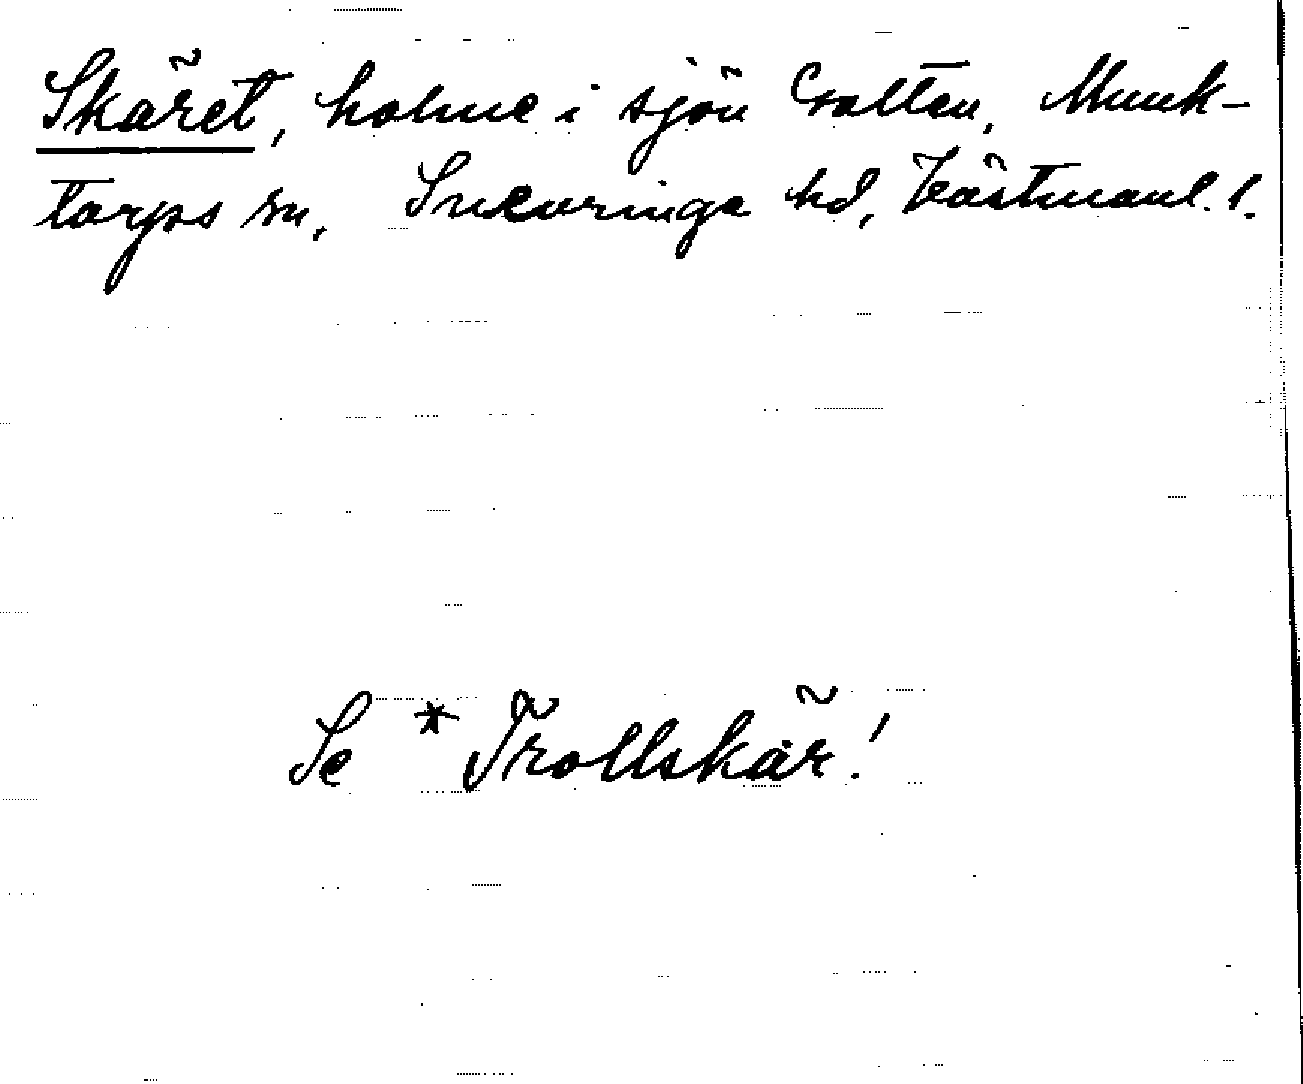 Skäret, holme i sjön Galten, Munk-
torps sn, Snevringe hd, Västmanl. l.
Se *Trollskär!